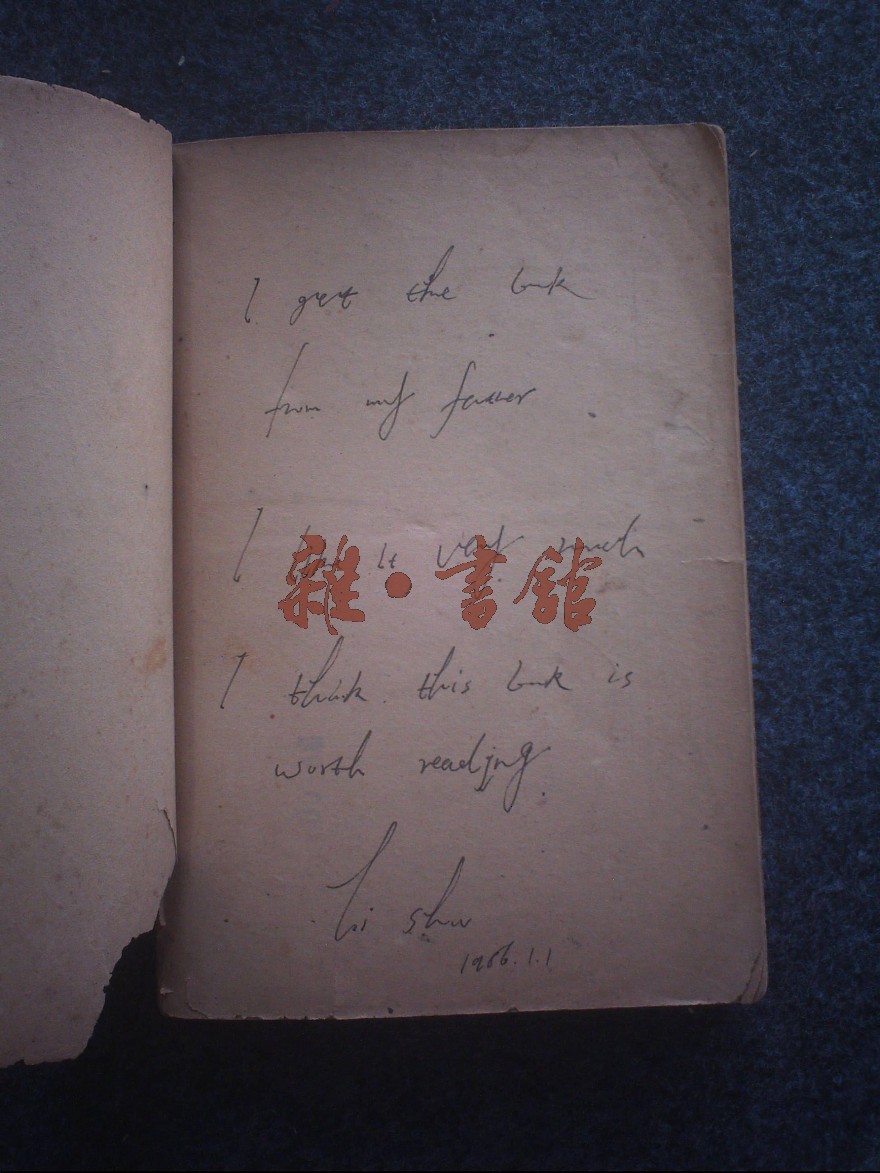 I get the book
from my father.
I it very much
雜·書館
I think this book is
worth reading.
Li shu
1966.1.1